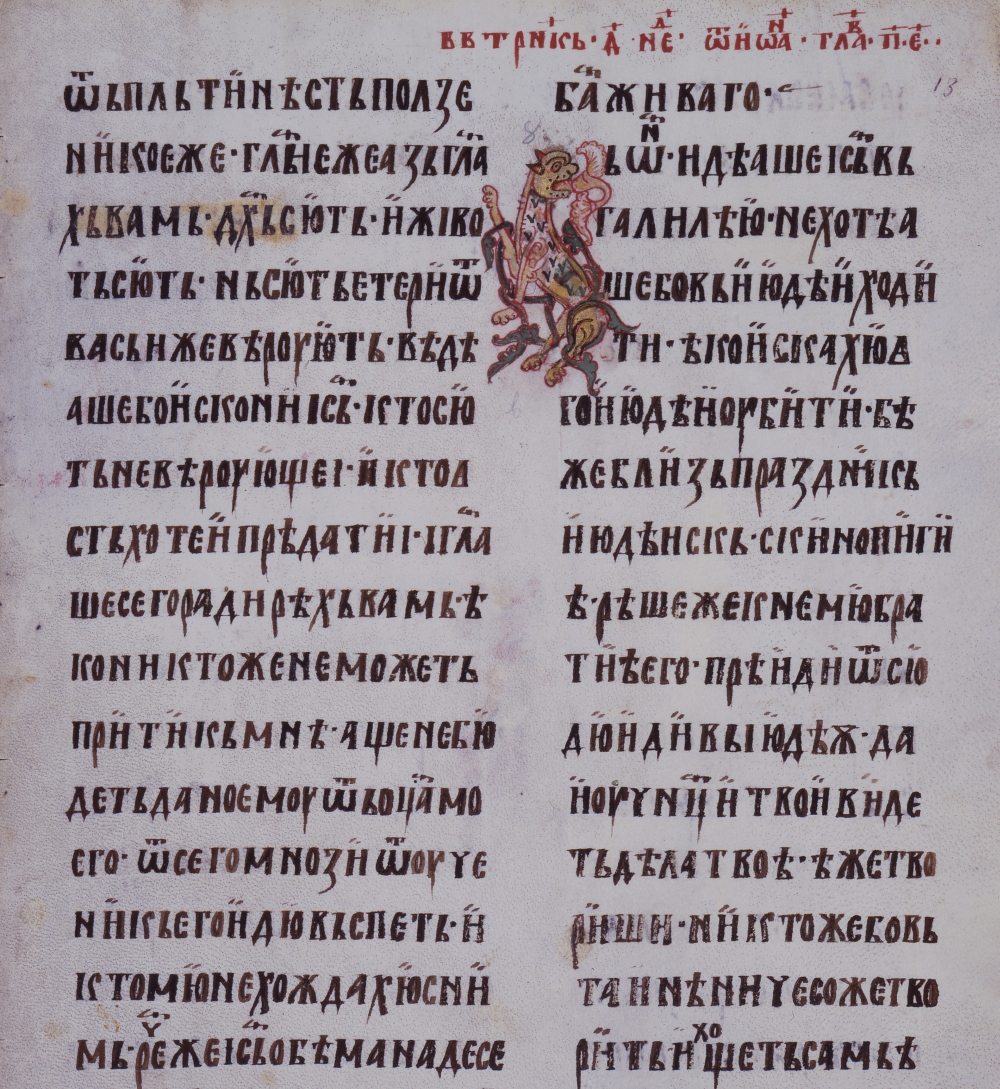 в вт҃рникь·д҃ не҃д· ѿ иѡ҃на· гла҃в·п҃·е҃··
ѿь пльти нѣсть ползе
никое же· гл҃ы неже азь гл҃а
хь вамь· дх҃ь сют·ь· и живо
ть сють· нь сють етери ѿ
вась иже вѣроують· вѣдѣ
аше бо искони іс҃ь· кто сю
ть невѣроуюшеі· и кто д
сть хотеи прѣдатиі· і гл҃а
ше сего ради рѣхь вамь·ѣ
ко никтоже не можеть
прити кь мнѣ· аще не бю
деть дано емоу ѿь оц҃а мо
его· ѿ сего мнози ѿ оуче
никь его идю вьспеть· и
к томю не хождахю с ни
мь· рече же іс҃ь обѣма на десе
ба҃живаго·
ь ѿн· идѣаше іс҃ь вь
галилѣю· не хотѣа
ше бо вь июдѣи ходи
ти· ѣко искахю д
го июдѣи оубити· бѣ
же близь праздникь
июдѣискь· скинопиги
ѣ· рѣше же к немю бра
тиѣ его· прѣиди ѿ сю
дю иди вы июдѣѫ· да
и оучн҃ци твои виде
ть дѣла твоѣ· ѣже тво
риши· никтоже бо вь
таинѣ ничесоже тво
рить и хощеть самь ѣ